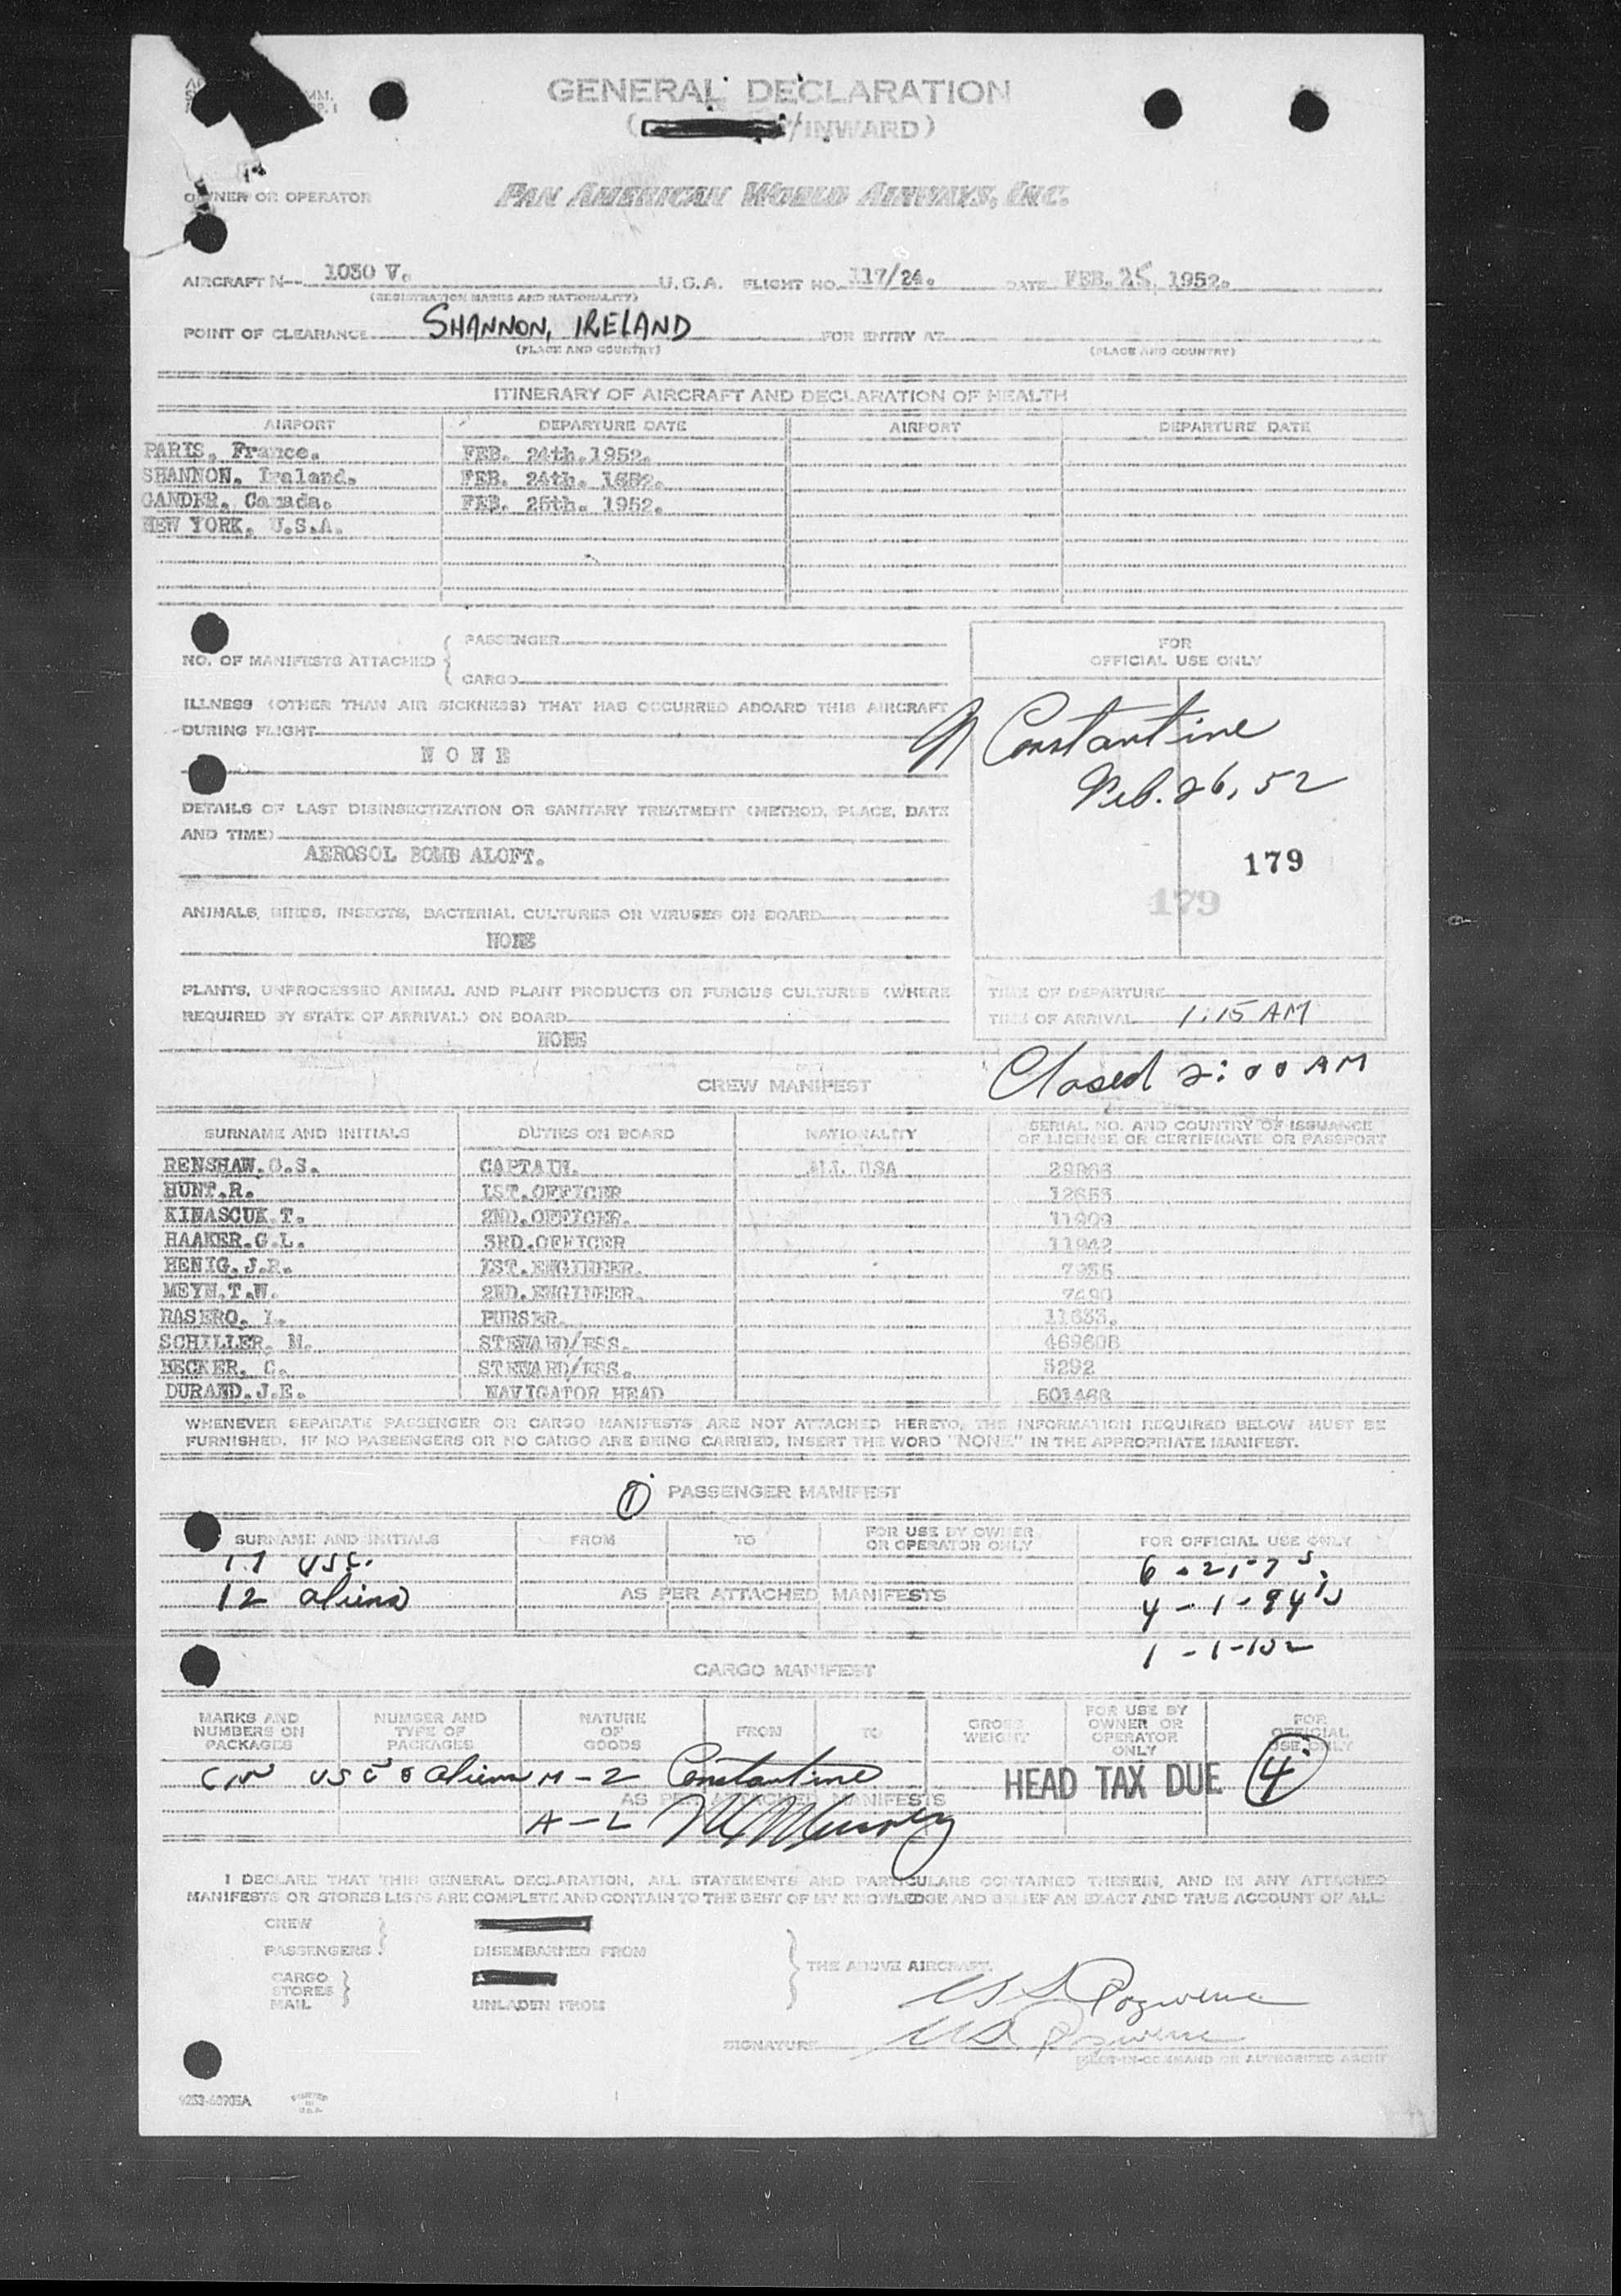 GENERAL DECLARATION
/INWARD)
OWNER OR OPERATOR PAN AMERICAN WORLD AIRWAYS, INC.
AIRCRAFT N-- 1030 V. U.S.A. FLIGHT NO. 117/24. DATE FEB. 25, 1952.
(REGISTRATION MARKS AND NATIONALITY)
POINT OF CLEARANCE SHANNON, IRELAND FOR ENTRY AT
(PLACE AND COUNTRY) (PLACE AND COUNTRY)
ITINERARY OF AIRCRAFT AND DECLARATION OF HEALTH
AIRPORT DEPARTURE DATE AIRPORT DEPARTURE DATE
PARIS, France. FEB. 24th.1952.
SHANNON. Ireland. FEB. 24th. 1652.
GANDER, Canada. FEB. 25th. 1952.
NEW YORK, U.S.A.
NO. OF MANIFESTS ATTACHED { PASSENGER
CARGO
ILLNESS (OTHER THAN AIR SICKNESS) THAT HAS OCCURRED ABOARD THIS AIRCRAFT
DURING FLIGHT
N O N E
DETAILS OF LAST DISINSECTIZATION OR SANITARY TREATMENT (METHOD, PLACE, DATE
AND TIME)
AEROSOL BOMB ALOFT.
ANIMALS, BIRDS, INSECTS, BACTERIAL CULTURES OR VIRUSES ON BOARD
NONE
PLANTS, UNPROCESSED ANIMAL AND PLANT PRODUCTS OR FUNGUS CULTURES (WHERE
REQUIRED BY STATE OF ARRIVAL) ON BOARD
NONE
FOR
OFFICIAL USE ONLY
Constantine
Feb. 26, 52
179
179
TIME OF DEPARTURE
TIME OF ARRIVAL 1:15 AM
Closed 2:00 AM
CREW MANIFEST
SURNAME AND INITIALS DUTIES ON BOARD NATIONALITY SERIAL NO. AND COUNTRY OF ISSUANCE
OF LICENSE OR CERTIFICATE OR PASSPORT
RENSHAW.C.S. CAPTAIN. ALL USA
HUNT.R. 1ST.OFFICER
KINASCUK.T. 2ND.OFFICER. 11909
HAAKER.G.L. 3RD.OFFICER 11942
HENIG.J.R. 1ST.ENGINEER.
MEYN.T.W. 2ND.ENGINEER. 7490
RASERO. I. PURSER.
SCHILLER. M. STEWARD/ESS. 469608
BECKER. C. STEWARD/ESS. 5292
DURAND.J.E. NAVIGATOR HEAD 501468
WHENEVER SEPARATE PASSENGER OR CARGO MANIFESTS ARE NOT ATTACHED HERETO, THE INFORMATION REQUIRED BELOW MUST BE
FURNISHED. IF NO PASSENGERS OR NO CARGO ARE BEING CARRIED, INSERT THE WORD "NONE" IN THE APPROPRIATE MANIFEST.
1 PASSENGER MANIFEST
SURNAME AND INITIALS FROM TO FOR USE BY OWNER
OR OPERATOR ONLY FOR OFFICIAL USE ONLY
17 USC.
12 aliens AS PER ATTACHED MANIFESTS
CARGO MANIFEST
MARKS AND
NUMBERS ON
PACKAGES NUMBER AND
TYPE OF
PACKAGES NATURE
OF
GOODS FROM TO GROSS
WEIGHT FOR USE BY
OWNER OR
OPERATOR
ONLY FOR
OFFICIAL
USE ONLY
Constantine
AS PER ATTACHED MANIFESTS
HEAD TAX DUE 4
A - L
I DECLARE THAT THIS GENERAL DECLARATION, ALL STATEMENTS AND PARTICULARS CONTAINED THEREIN, AND IN ANY ATTACHED
MANIFESTS OR STORES LISTS ARE COMPLETE AND CONTAIN TO THE BEST OF MY KNOWLEDGE AND BELIEF AN EXACT AND TRUE ACCOUNT OF ALL:
CREW
PASSENGERS } DISEMBARKED FROM
CARGO
STORES
MAIL } UNLADEN FROM
} THE ABOVE AIRCRAFT.
SIGNATURE
PILOT-IN-COMMAND OR AUTHORIZED AGENT
PRINTED
IN
U.S.A.